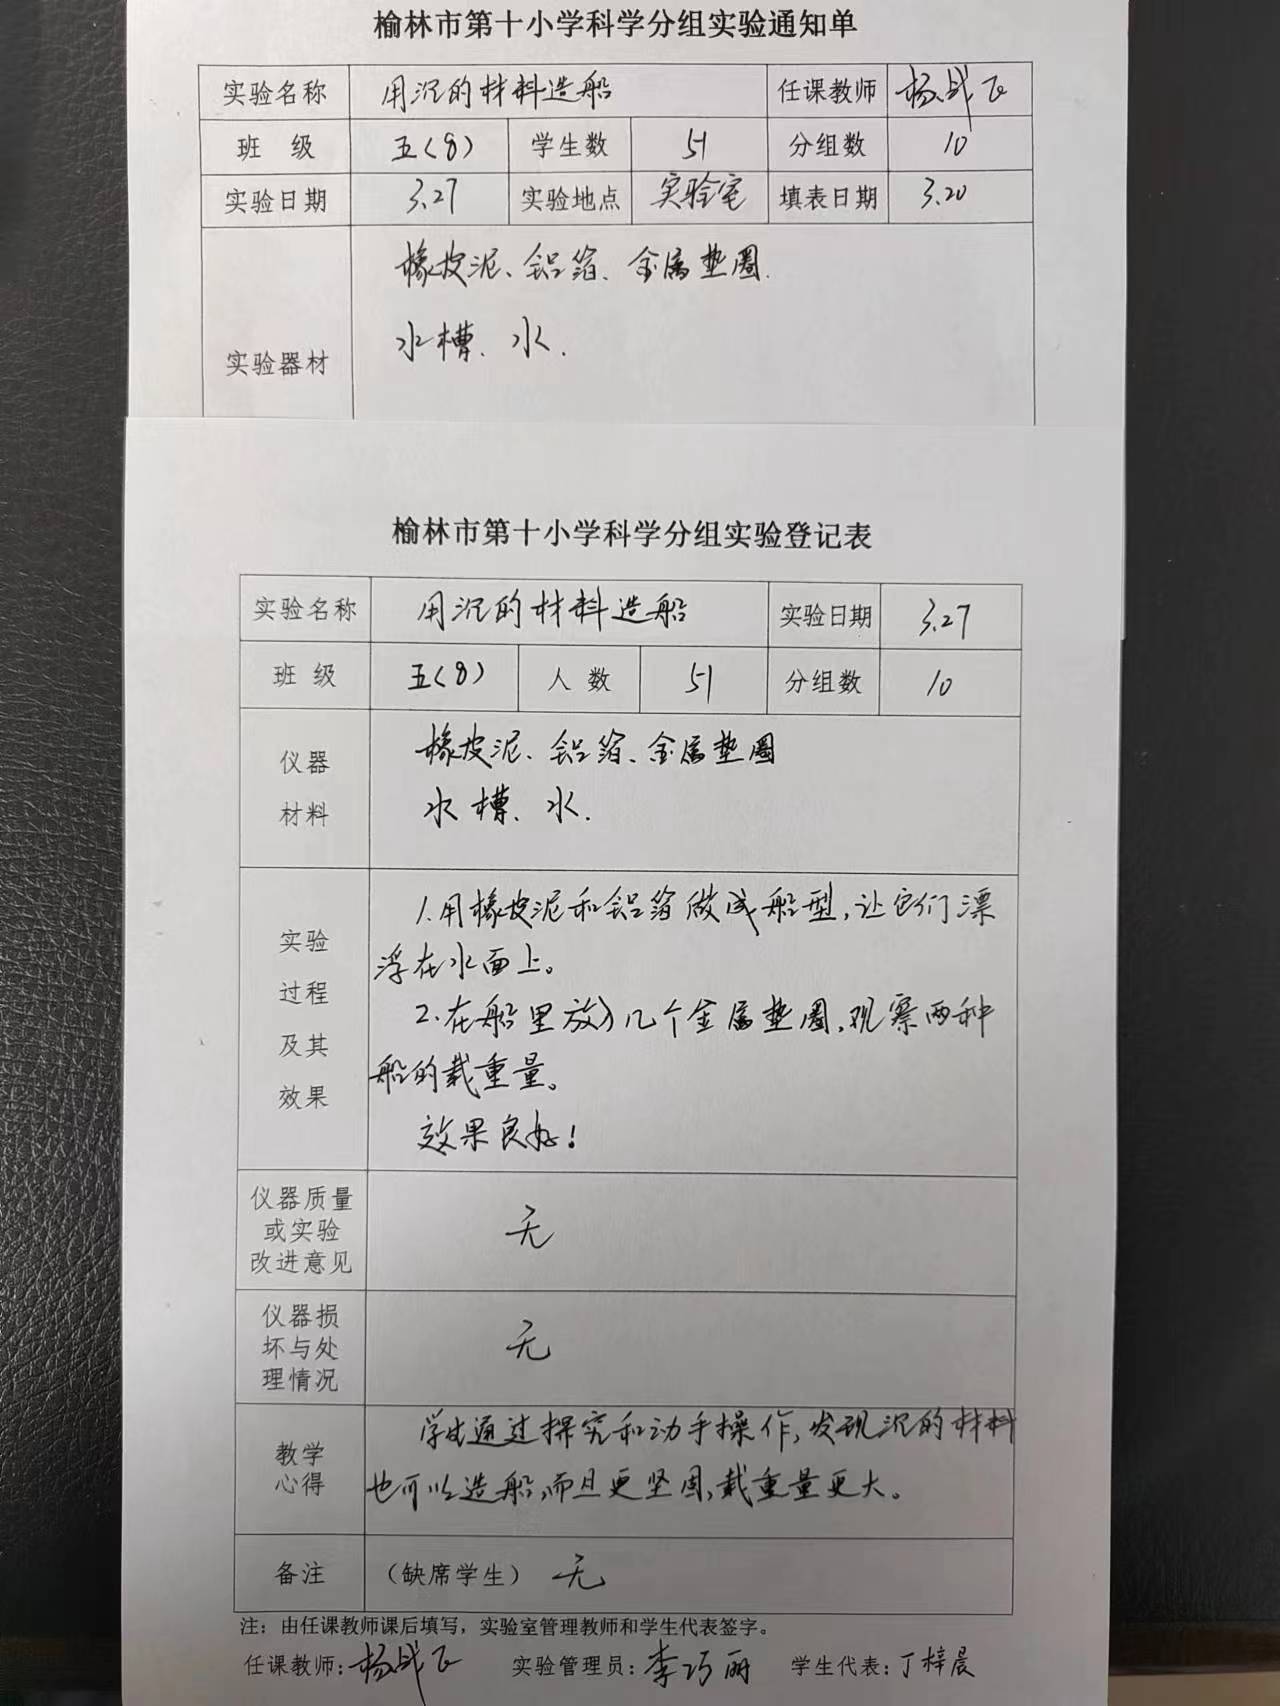 榆林市第十小学科学分组实验通知单
实验名称 用沉的材料造船 任课教师 杨战飞
班 级 五(8) 学生数 51 分组数 10
实验日期 3.27 实验地点 实验室 填表日期 3.20
橡皮泥、铝箔、金属垫圈.
水槽、水.
实验器材
榆林市第十小学科学分组实验登记表
实验名称 用沉的材料造船 实验日期 3.27
班 级 五(8) 人 数 51 分组数 10
仪器
材料
橡皮泥、铝箔、金属垫圈
水槽、水.
实验
过程
及其
效果
1.用橡皮泥和铝箔做成船型,让它们漂
浮在水面上。
2.在船里放入几个金属垫圈,观察两种
船的载重量。
效果良好!
仪器质量
或实验
改进意见
无
仪器损
坏与处
理情况
无
教学
心得
学生通过探究和动手操作,发现沉的材料
也可以造船,而且更坚固,载重量更大。
备注 (缺席学生) 无
注:由任课教师课后填写,实验室管理教师和学生代表签字。
任课教师:杨战飞 实验管理员:李巧丽 学生代表:丁梓晨